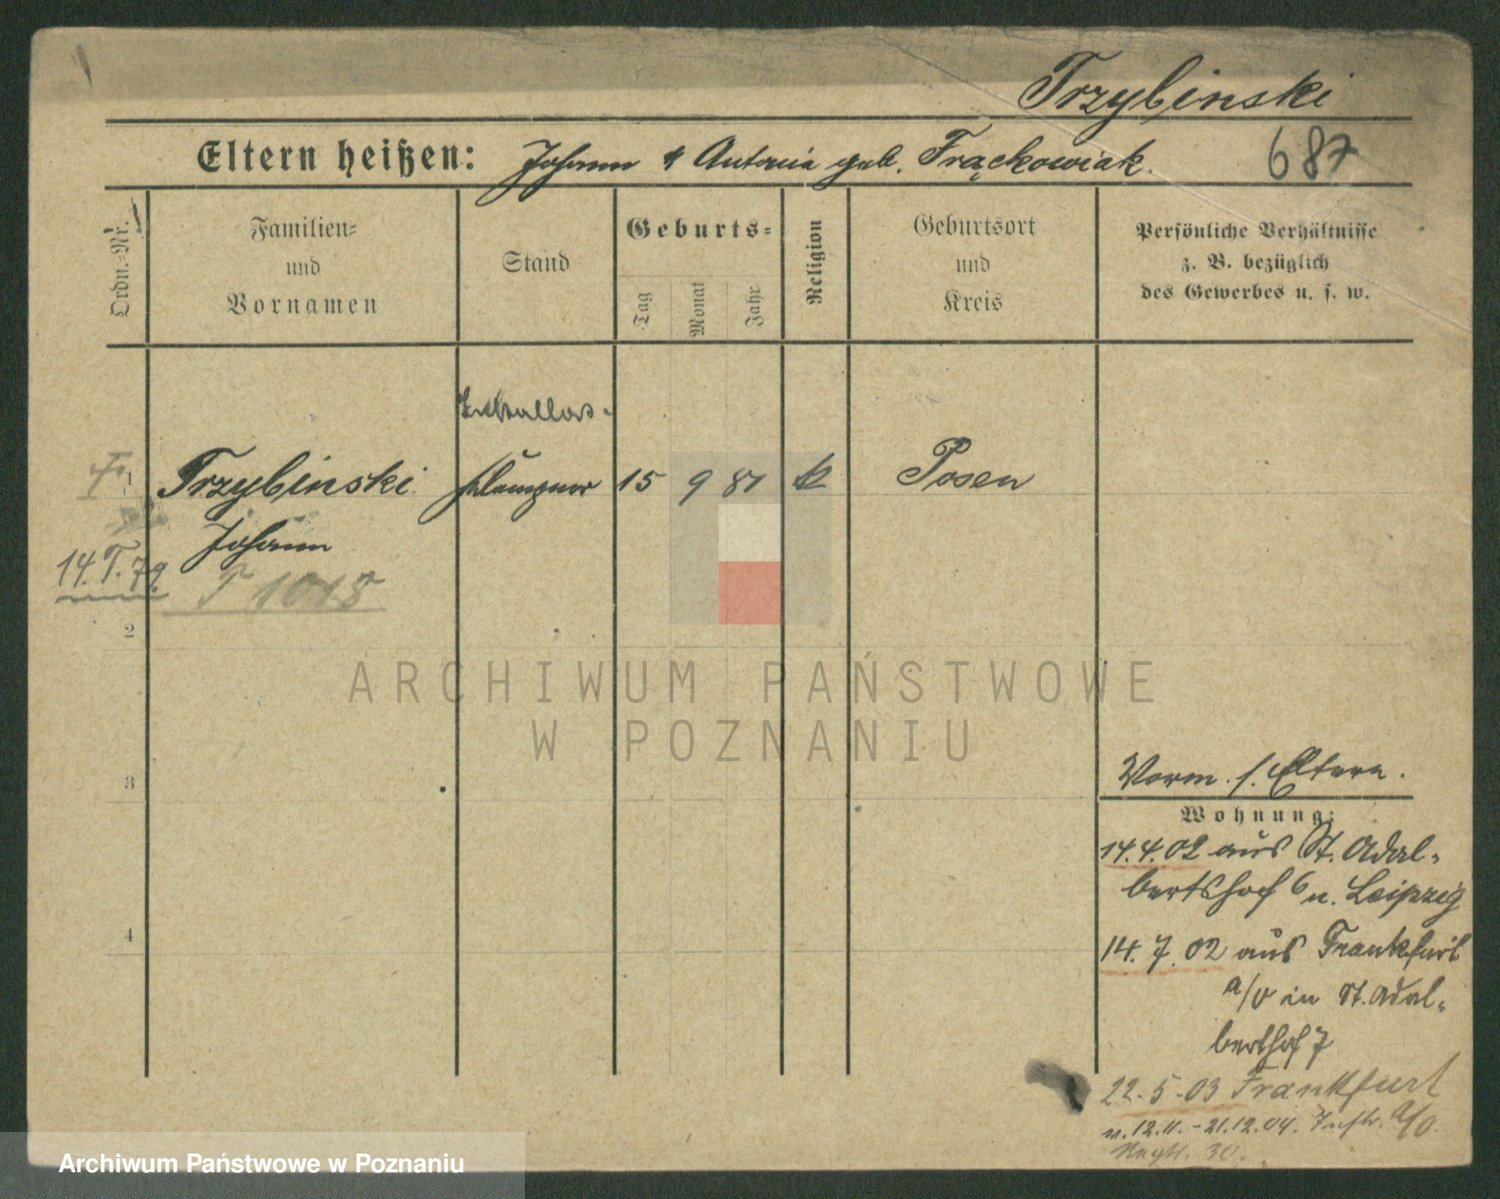 Trzybinski
Eltern heißen: Johann & Antonie geb. Frąckowiak.
687
Ordn.-Nr.
Familien-
und
Vornamen
Stand
Geburts-
Tag
Monat
Jahr
Religion
Geburtsort
und
Kreis
Persönliche Verhältnisse
z. B. bezüglich
des Gewerbes u. s. w.
1
Trzybinski
Johann
T 1018
14. T. 79
klempner
15 9 81 k
Posen
2
3
4
Vorm. s. Eltern.
Wohnung:
14.4.02 aus St. Adal-
bertshof 6 n. Leipzig
14.7.02 aus Frankfurt
a/O in St. Adal-
berthof 7
22.5.03 Frankfurt
a/O.
v. 12.11.-21.12.04.
30.
ARCHIWUM PAŃSTWOWE
W POZNANIU
Archiwum Państwowe w Poznaniu